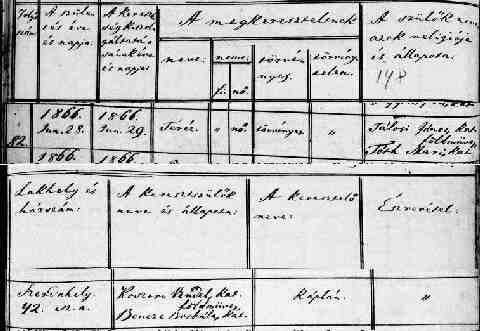 Folyó szám
A szülés éve és napja.
A keresztség kiszolgáltatása évé és napja.
A megkereszteltnek
neve.
neme.
fi. nő.
törvényes.
törvénytelen.
A szülők neve, azok religiója és állapota.
148
82.
1866. Jan. 28.
1866. Jan. 29.
Teréz.
" nő.
törvényes
"
János Kat.
földműves
Tóth Mari, Kat.
1866
1866
Lakhely és házszám:
A keresztszülők neve és állapota:
A keresztelő neve:
Észrevétel:
Szerdahely. 42. sz. a.
Vendel, Kat.
földműves
Bencze Borbála, Kat.
Káplán.
"